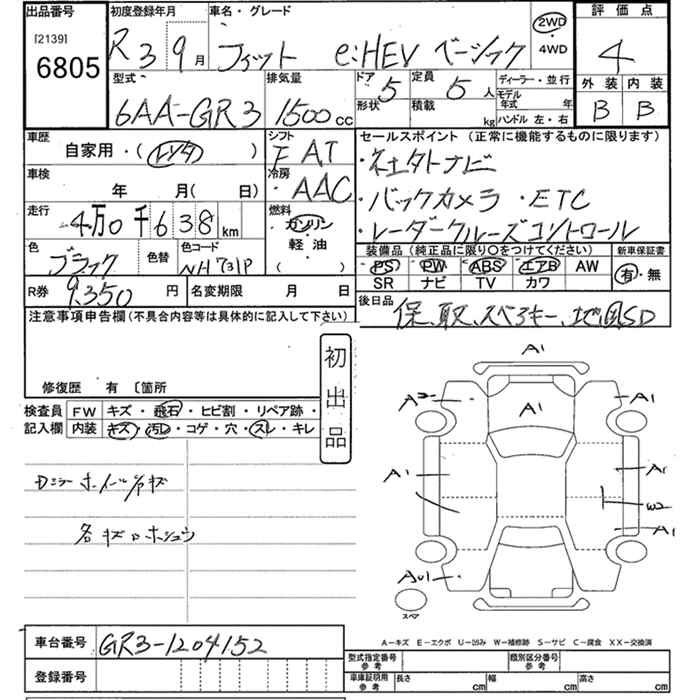 出品番号 初度登録年月 車名・グレード 評価点
[2139] 6805 R3 9月 フィット e:HEV ベーシック 2WD ・ 4WD 4
型式 排気量 ドア 定員 ディーラー・並行 外装 内装
6AA-GR3 1500cc 5 5人 モデル年式 年 B B
形状 積載 kg ハンドル 左・右
車歴 シフト セールスポイント (正常に機能するものに限ります)
自家用・(レンタ) FAT
車検 冷房 ・バックカメラ ・ETC
年 月(日) AAC ・レーダークルーズコントロール
走行 燃料
4万0千638km ガソリン 装備品(純正品に限り○をつけてください) 新車保証書
色 色替 色コード 軽油 PS PW ABS エアB AW 有・無
ブラック NH731P ( ) SR ナビ TV カワ
R券 9,350円 名変期限 月 日 後日品 保、取、スペアキー、地図SD
注意事項申告欄(不具合内容等は具体的に記入して下さい)
初出品
修復歴 有 〔箇所
検査員 FW キズ・飛石・ヒビ割・リペア跡・
記入欄 内装 キズ・汚レ・コゲ・穴・スレ・キレ
A1
A2 A1 A1
A1 A1
W2
A1
AU1
スペア
各キズ
A−キズ E−エクボ U−凹み W−補修跡 S−サビ C−腐食 XX−交換済
車台番号 GR3-1204152
型式指定番号 参考 類別区分番号 参考
登録番号
車庫証明用 参考 長さ cm 幅 cm 高さ cm